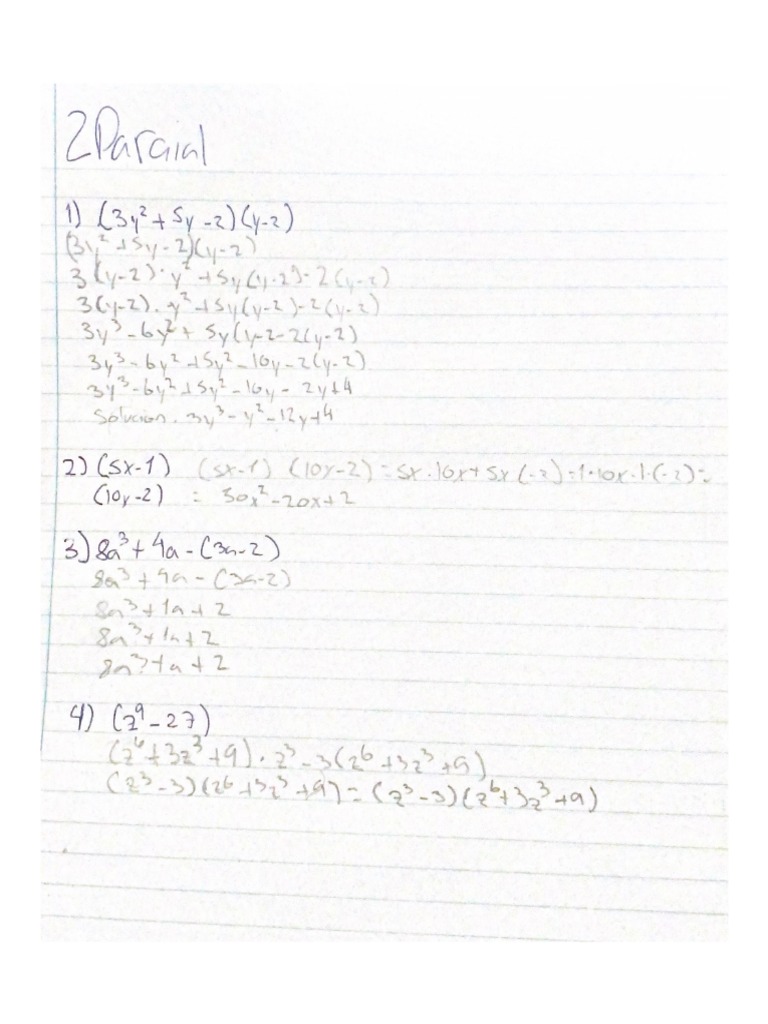 2Parcial
1) (3y²+5y-2)(y-2)
(3y²+5y-2)(y-2)
3(y-2)·y²+5y(y-2)-2(y-2)
3(y-2)·y²+5y(y-2)-2(y-2)
3y³-6y²+5y(y-2-2(y-2)
3y³-6y²+5y²-10y-2(y-2)
3y³-6y²+5y²-10y-2y+4
Solucion. 3y³-y²-12y+4
2) (5x-1) (5x-1) (10x-2)=5x·10x+5x(-2)=1·10x·1·(-2)=
(10x-2) = 50x²-20x+2
3) 8a³+4a-(3a-2)
8a³+4a-(3a-2)
8a³+1a+2
8a³+1a+2
8a³+a+2
4) (z⁹-27)
(z⁶+3z³+9)·z³-3(z⁶+3z³+9)
(z³-3)(z⁶+3z³+9)=(z³-3)(z⁶+3z³+9)